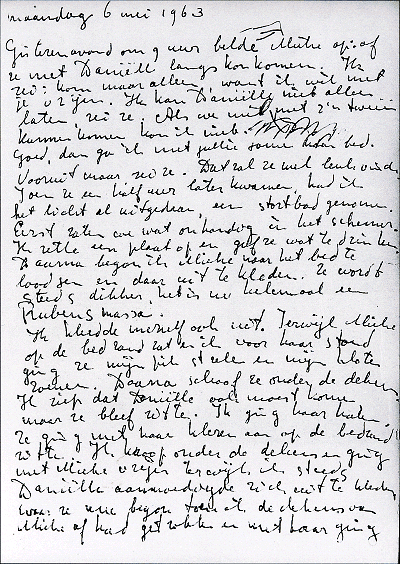 maandag 6 mei 1963
Gisteren avond om 9 uur belde Mieke op: of
ze met Daniëlle langs kon komen. Ik
zei: kom maar alleen, want ik wil met
je vrijen. Ik kan Daniëlle niet alleen
laten, zei ze, als we niet met z'n tweeën
kunnen komen kan ik niet.
Goed, dan ga ik met jullie samen naar bed.
Vooruit maar zei ze. Dat zal ze wel leuk vinden.
Toen ze een half uur later kwamen, had ik
het licht al uitgedaan, en stortbad genomen.
Eerst zaten we wat onhandig in het schemer.
Ik zette een plaat op en gaf ze wat te drinken.
Daarna begon ik Mieke naar het bed te
loodsen en daar uit te kleden. Ze wordt
steeds dikker, het is nu helemaal een
Rubensmassa.
Ik kleedde mezelf ook uit. Terwijl Mieke
op de bedrand zat en ik voor haar stond
ging ze mijn pik strelen en mijn kloten
zoenen. Daarna schoof ze onder de dekens.
Ik riep dat Daniëlle ook moest komen
maar ze bleef zitten. Ik ging haar halen.
Ze ging met haar kleren aan op de bedrand
zitten. Ik kroop onder de dekens en ging
met Mieke vrijen terwijl ik steeds
Daniëlle aanmoedigde zich uit te kleden
waar ze mee begon toen ik de dekens van
Mieke af had getrokken en met haar ging